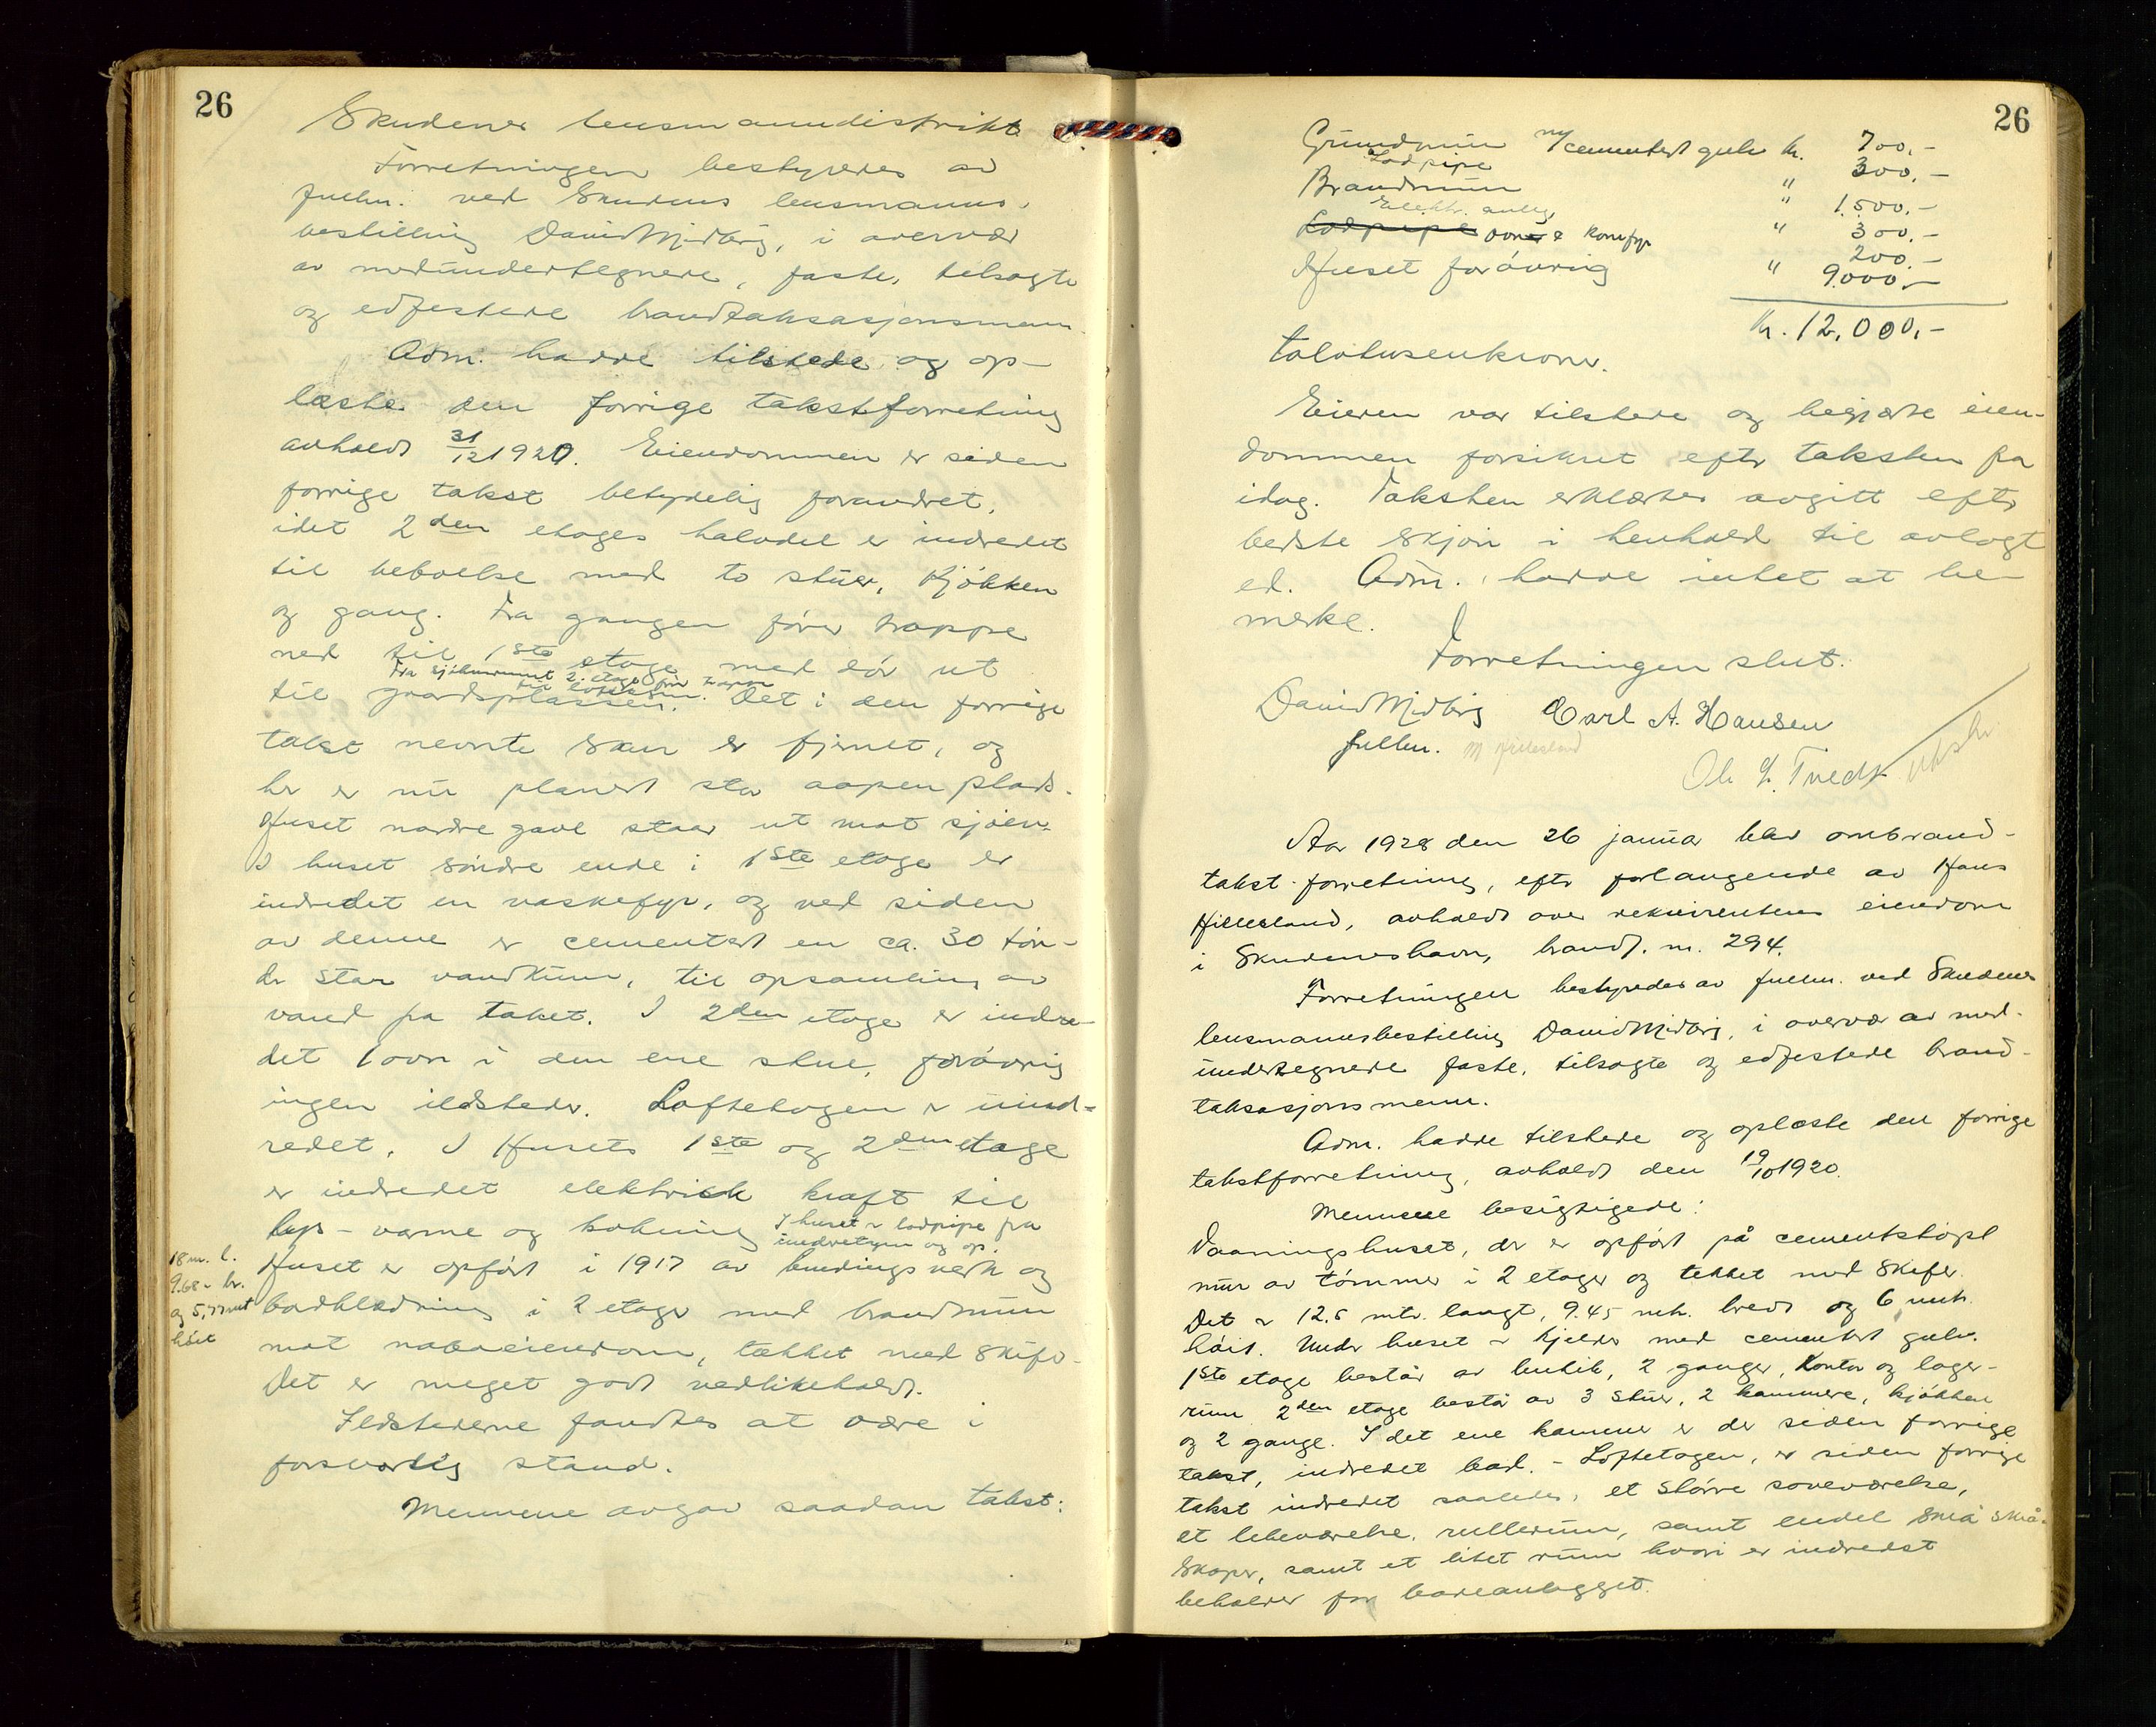 26
Skudenes lensmannsdistrikt
Forretningen bestyredes av
fullm. ved Skudenes lensmanns-
bestilling David Midbøg, i overvær
av medundertegnede, faste, tilsagte
og edfestede brandtaksasjonsmenn.
Adm. hadde tilstede og op-
læste den forrige takstforretning
avholdt 31/12 1920. Eiendommen er siden
forrige takst betydelig forandret,
idet 2den etages halvdel er indredet
til bebvelse med to stuer, kjøkken
og gang. Fra gangen fører trappe
ned til 1ste etage med dør ut
Fra sjøhusrummet 2. etage fører trappe
til loftsrum.
til gaardsplassen. Det i den forrige
takst nevnte skur er fjernet, og
her er nu planert stor aapen plads.
Huset nordre gavl staar ut mot sjøen.
I huset søndre ende i 1ste etage er
indredet en vaskefyr, og ved siden
av denne er cementert en ca. 30 tøn-
der stor vandkum, til opsamling av
vand fra taket. I 2den etage er indre-
det 1 ovn i den ene stue, forøvrig
ingen ildsteder. Loftetagen er uind-
redet. I Husets 1ste og 2den etage
er indredet elektrisk kraft til
lys- varme og kokning I huset er lodpipe fra
underetagen og op.
18 m. l.
9.68 " br.
og 5,77 mt
høit
Huset er opført i 1917 av bindingsverk og
bordklædning i 2 etager med brandmur
mot naboeiendom, tækket med skifer.
Det er meget godt vedlikeholdt.
Ildstederne fandtes at være i
forsvarlig stand.
Mennene avgav saadan takst:
26
Grundmur m/ cementert gulv kr. 700,-
Lodpipe 300,-
Brandmur " 1.500,-
Elektr. anlæg " 300,-
Lodpipe ovn & komfyr 200,-
Huset forøvrig " 9.000,-
Kr. 12,000,-
tolvtusenkroner.
Eieren var tilstede og begjærte eien-
dommen forsikret efter taksten fra
idag. Taksten erklæres avgitt efter
bedste skjøn i henhold til avlagt
ed. Adm. hadde intet at be-
merke.
Forretningen slut.
David Midbøg Carl A. Hansen
fullm. M Hillesland
Ole G. Tvedt
Aar 1928 den 26 januar blev ombrand-
takst-forretning, efter forlangende av Hans
Hillesland, avholdt over rekvirentens eiendom
i Skudeneshavn, brandf. nr. 294.
Forretningen bestyredes av fullm. ved Skudenes
lensmannsbestilling David Midbøg, i overvær av med-
undertegnede faste, tilsagte og edfestede brand-
taksasjonsmenn.
Adm. hadde tilstede og oplæste den forrige
takstforretning, avholdt den 19/10 1920.
Mennene besigtigede:
Vaaningshuset, der er opført på cementstøpt
mur av tømmer i 2 etager og tekket med skifer.
Det er 12.5 mtr. langt, 9.45 mtr. bredt og 6 mtr.
høit. Under huset er kjelder med cementert gulv.
1ste etage består av butik, 2 ganger, kontor og lager-
rum. 2den etage består av 3 stuer, 2 kammere, kjøkken
og 2 gange. I det ene kammer er der siden forrige
takst, indredet bad. - Loftetagen, er siden forrige
takst indredet saaledes, et større soveværelse,
et leieværelse, rullerum, samt endel små små-
skaper, samt et litet rum hvori er indredet
beholder for badeanlegget.